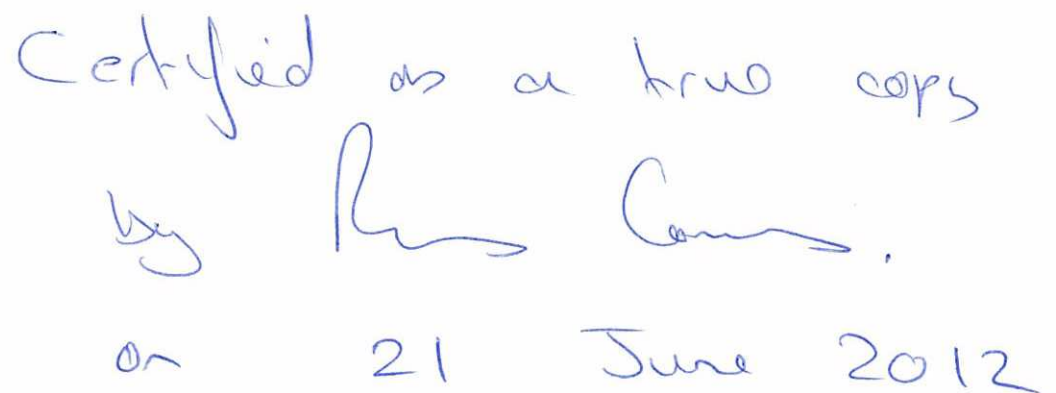 Certified as a true copy
by
on 21 June 2012